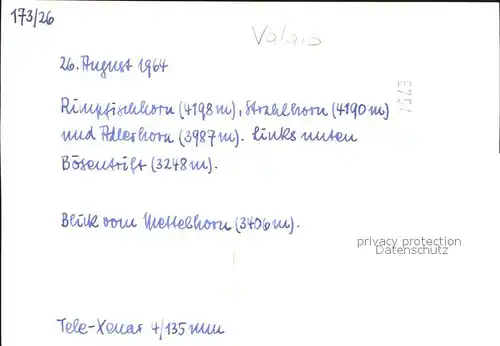 173/26
Valais
26. August 1964
Rimpfischhorn (4198m), Strahlhorn (4190m)
und Adlerhorn (3987m). Links unten
Bösentrift (3248m).
Blick vom Mettelhorn (3406m).
privacy protection
Datenschutz
Tele-Xenar 4/135mm